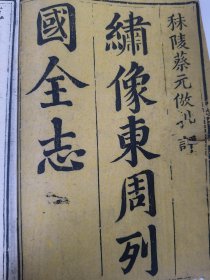 秣陵蔡元倣批訂
繡像東周列
國全志